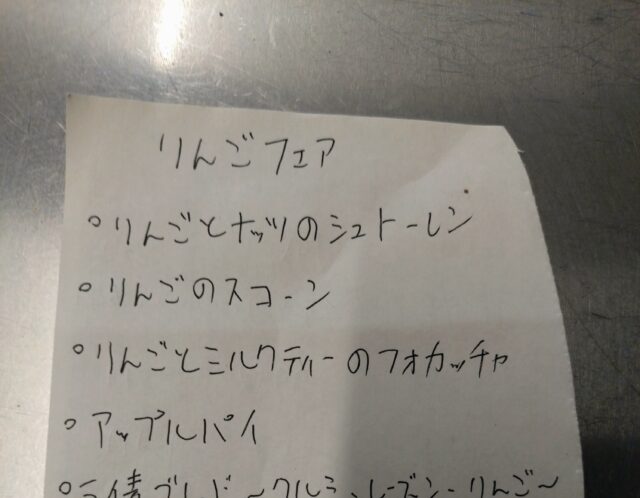 りんごフェア
○りんごとナッツのシュトーレン
○りんごのスコーン
○りんごとミルクティーのフォカッチャ
○アップルパイ
○ ブレド～クルミ、レーズン・りんご～